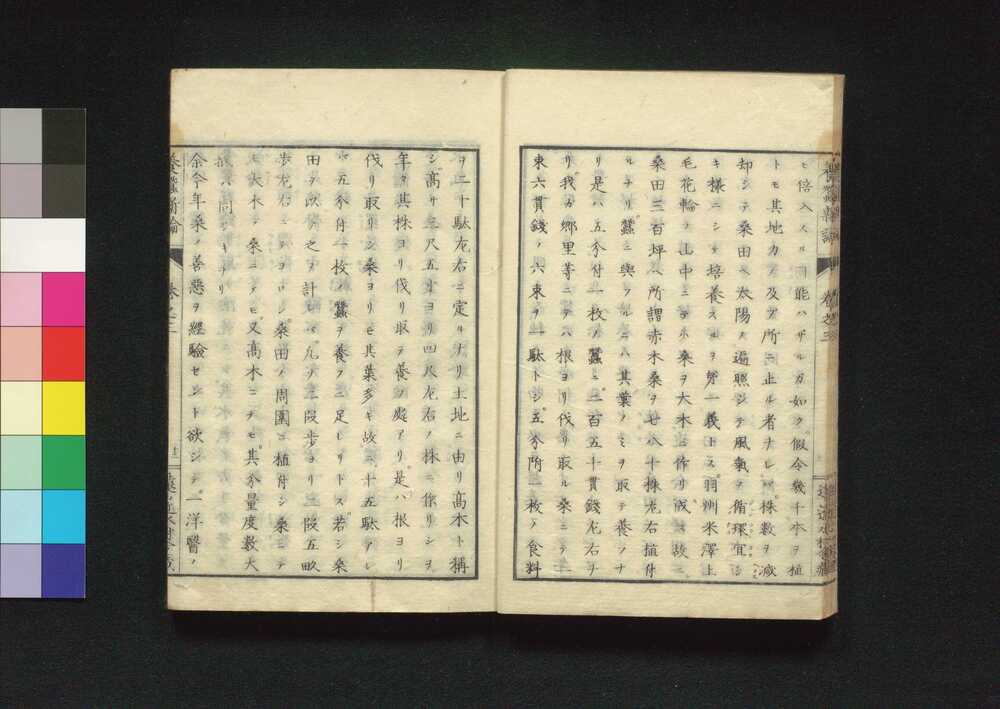 ヒ倍入スル事能ハザルガ如ク假令幾千本ヲ植
トモ其地力ノ及ブ所ニ止ル者ナレバ株數ヲ減
却シテ桑田ヘ太陽ヲ遍照シテ風氣ヲ循環宜シ
キ樣ニシテ培養スルヲ第一義トス羽州米澤上
毛花輪ノ山中ニテハ小桑ヲ大木ニ作リ成ス故ニ
桑田三百坪ヘ所謂赤木桑ヲ七八十株左右植付
ルナリ蠶ニ與フルニハ其葉ノミヲ取テ養フナ
リ是ハ五分付一枚ノ蠶ニ二百五十貫錢左右ヲ
リ我ガ鄉里等ニテハ根ヨリ伐リ取ル桑ニテ一
束六貫錢ノ六束ヲ一駄トシ五分附一枚ノ食料
ヲ二十駄左右ニ定ルナリ土地ニ由リ高木ト稱
シ高サ三尺五寸ヨリ四尺左右ノ株ニ作リシヲ
年々其株ヨリ伐リ取テ養フ處アリ是ハ根ヨリ
伐リ取リシ桑ヨリモ其葉多キ故ニ十五駄アレ
バ五分付一枚ノ蠶ヲ養フニ足レリトス若シ桑
田ヲ以テ之ヲ計レバ凡テ二段步ヨリ二段五畝
步左右ニシテヨロシ桑田ノ周圍ニ植付シ桑ニテ
モ大木ノ桑ニテモ又高木ニテモ其分量度數大
抵ハ同ジキナリ
余今年桑ノ善惡ヲ經驗セント欲シテ一洋醫ノ
養蠶新論 卷之二